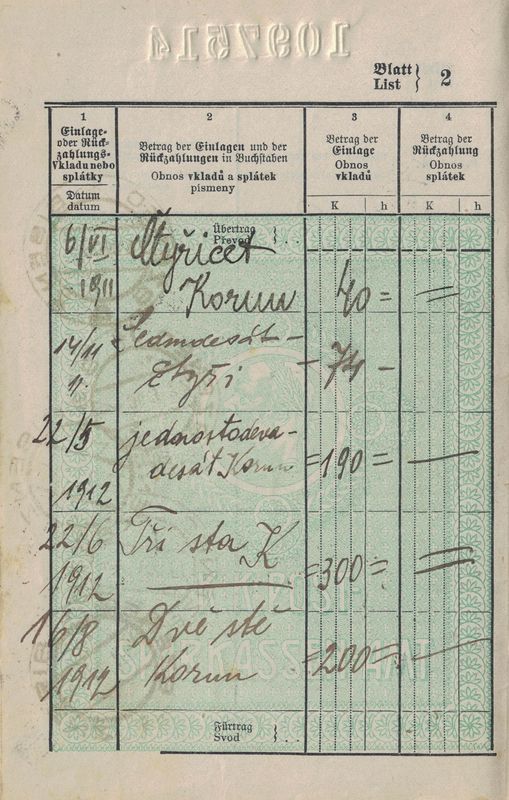 1097514
Blatt
List } 2
1 2 3 4
Einlage-
oder Rück-
zahlungs-
Vkladu nebo
splátky
Datum
datum
Betrag der Einlagen und der
Rückzahlungen in Buchstaben
Obnos vkladů a splátek
písmeny
Betrag der
Einlage
Obnos
vkladů
K h
Betrag der
Rückzahlung
Obnos
splátek
K h
Übertrag
Převod } . .
6/VI Čtyřicet
1911 Korun 40 = =
14/11 Sedmdesát-
11. čtyři - 74 -
22/5 jednostodeva-
1912 desát Korun = 190 = —
22/6 Tři sta K
1912 = 300 = =
16/8 Dvě stě
1912 Korun = 200 = —
SPARKASSENAMT
Fürtrag
Svod } . .